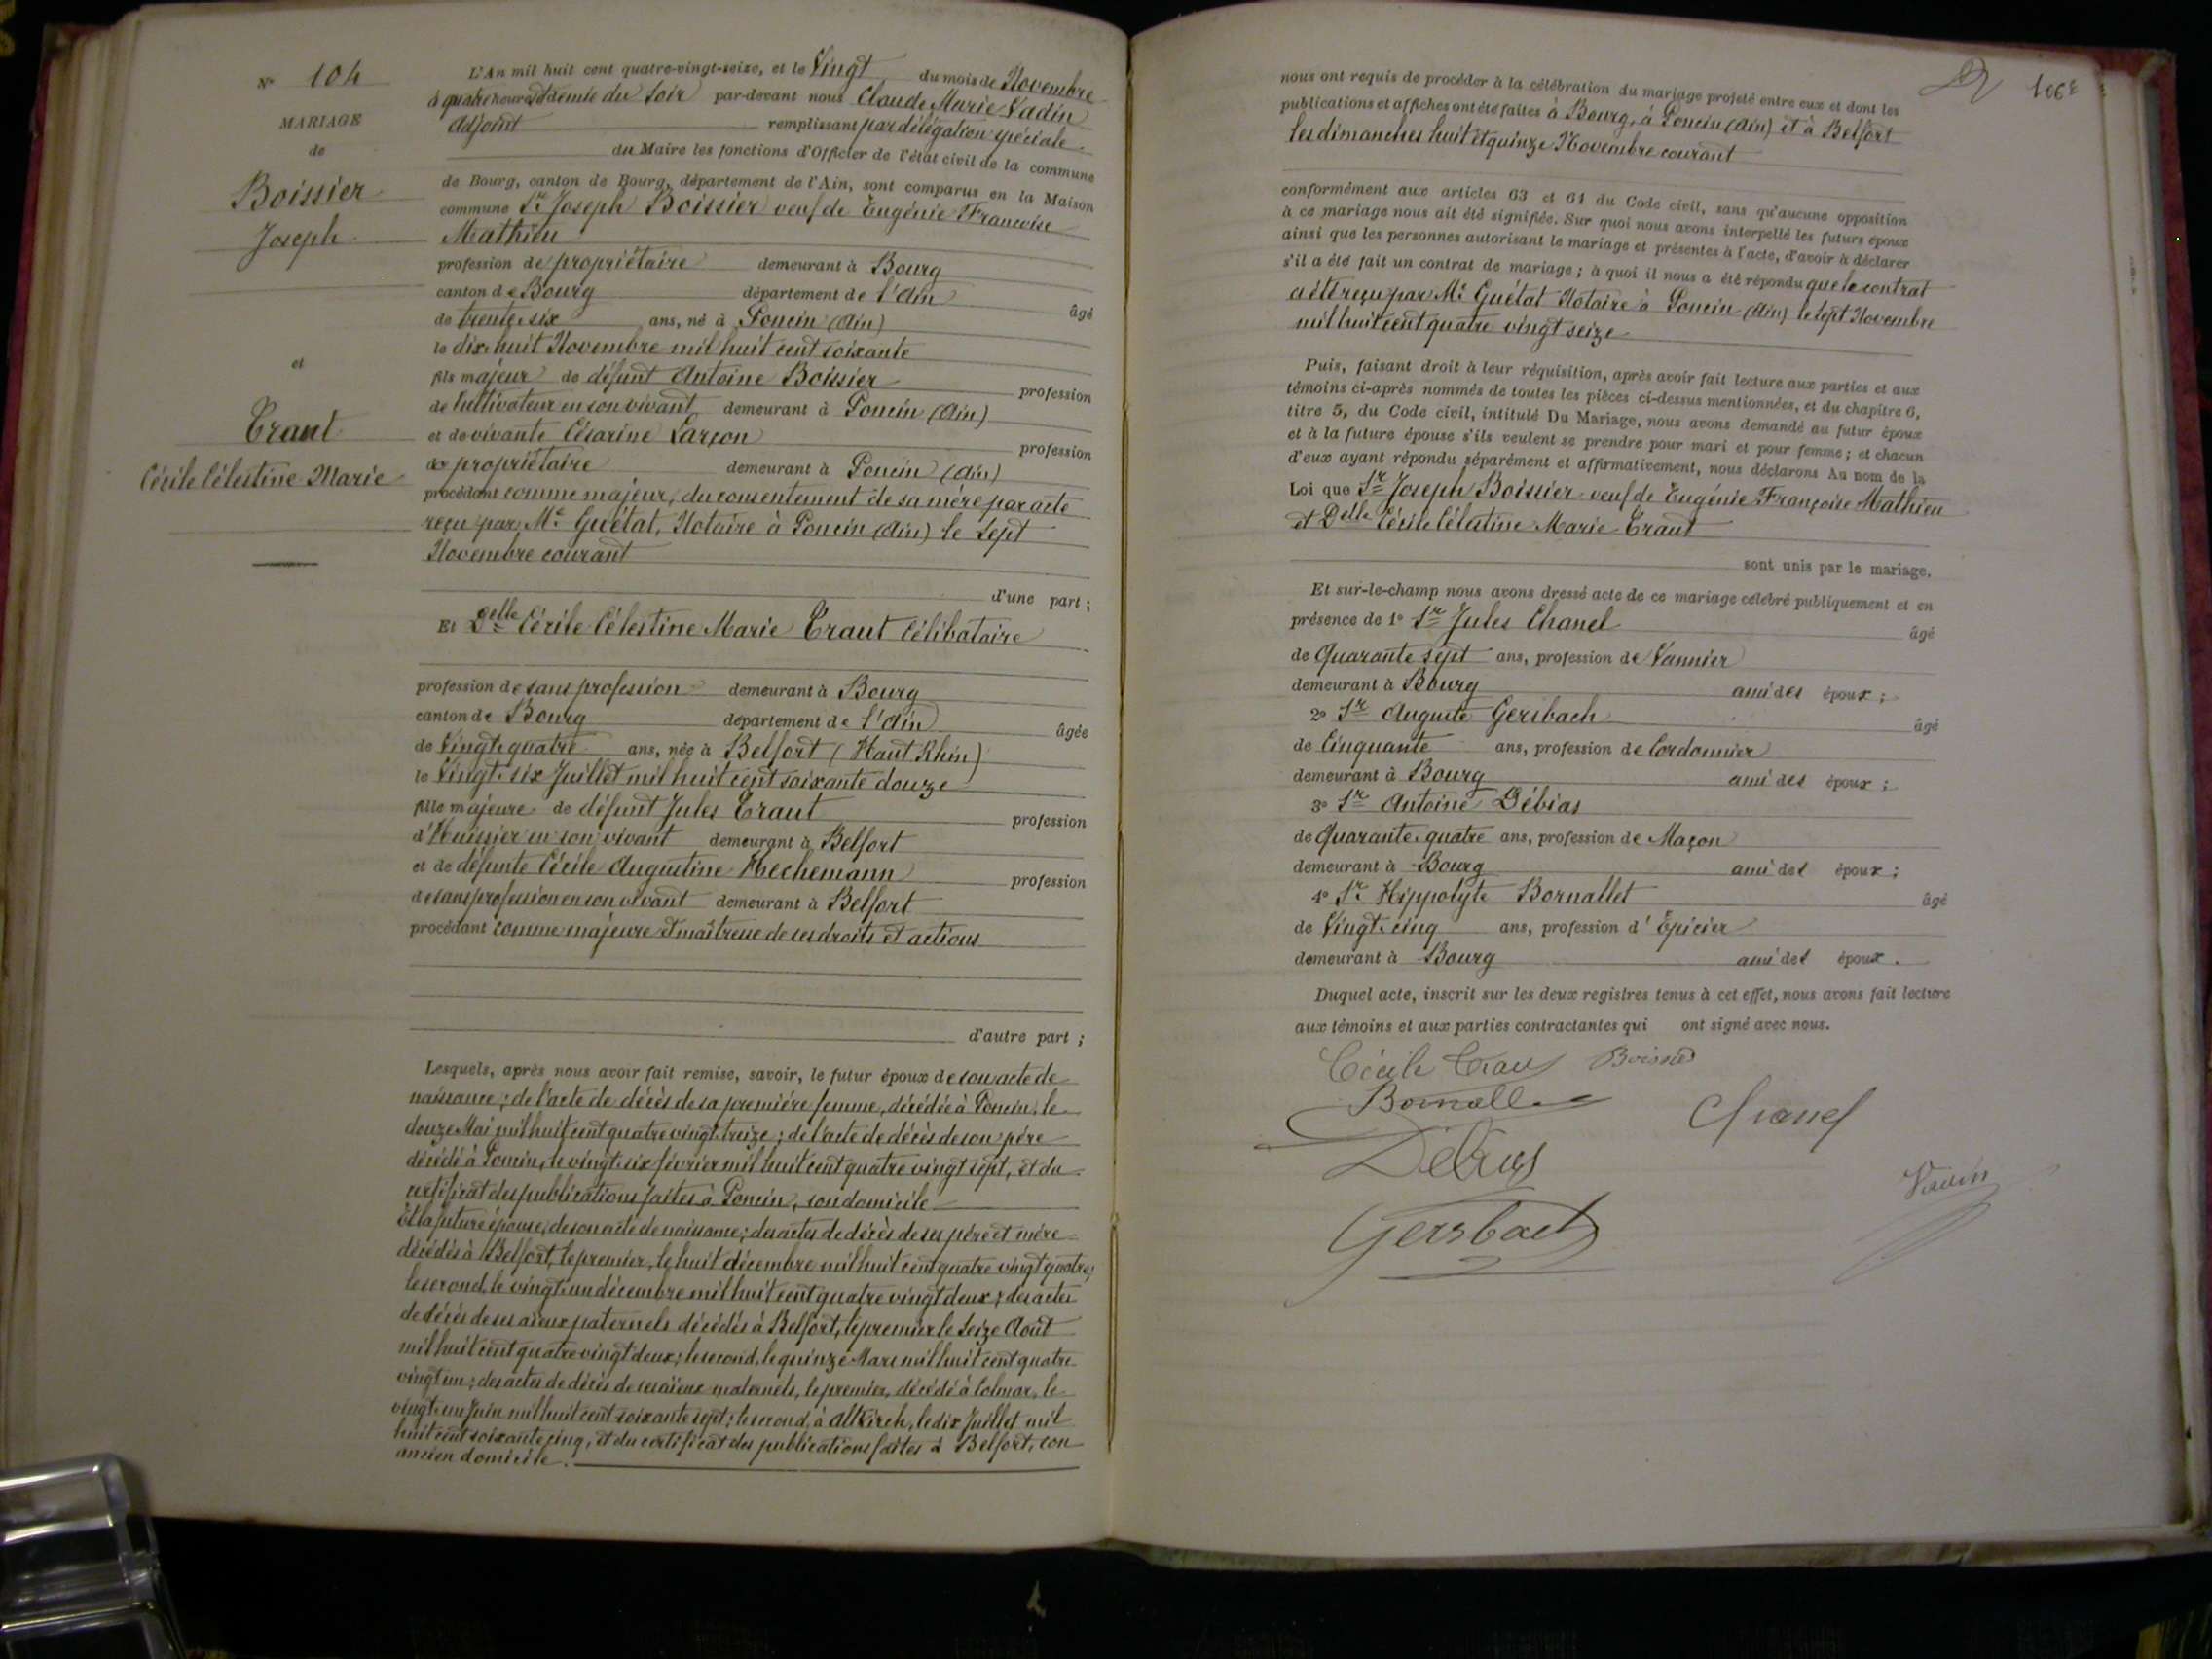 N° 104
MARIAGE
de
Boissier
Joseph
et
Traut
Cécile Célestine Marie
L'An mil huit cent quatre-vingt-seize, et le Vingt du mois de Novembre
à quatre heures et demie du soir par-devant nous Claude Marie Vadin
Adjoint remplissant par délégation spéciale
du Maire les fonctions d'Officier de l'état civil de la commune
de Bourg, canton de Bourg, département de l'Ain, sont comparus en la Maison
commune Sr Joseph Boissier veuf de Eugénie Françoise
Mathieu
profession de propriétaire demeurant à Bourg
canton de Bourg département de l'Ain âgé
de trente six ans, né à Poncin (Ain)
le dix huit Novembre mil huit cent soixante
fils majeur de défunt Antoine Boissier profession
de Cultivateur en son vivant demeurant à Poncin (Ain)
et de vivante Césarine Larçon profession
de propriétaire demeurant à Poncin (Ain)
procédant comme majeur, du consentement de sa mère par acte
reçu par Me Guétat, Notaire à Poncin (Ain) le sept
Novembre courant
d'une part ;
Et Delle Cécile Célestine Marie Traut célibataire
profession de sans profession demeurant à Bourg
canton de Bourg département de l'Ain âgée
de Vingt quatre ans, née à Belfort (Haut Rhin)
le Vingt six Juillet mil huit cent soixante douze
fille majeure de défunt Jules Traut profession
d'Huissier en son vivant demeurant à Belfort
et de défunte Cécile Augustine Hechemann profession
de sans profession en son vivant demeurant à Belfort
procédant comme majeure et maîtresse de ses droits et actions
d'autre part ;
Lesquels, après nous avoir fait remise, savoir, le futur époux de son acte de
naissance ; de l'acte de décès de sa première femme, décédée à Poncin, le
douze Mai mil huit cent quatre vingt treize ; de l'acte de décès de son père
décédé à Poncin, le vingt six février mil huit cent quatre vingt sept, et du
certificat des publications faites à Poncin, son domicile
Et la future épouse, de son acte de naissance ; des actes de décès de ses père et mère
décédés à Belfort, le premier, le huit décembre mil huit cent quatre vingt quatre ;
le second, le vingt un décembre mil huit cent quatre vingt deux ; des actes
de décès de ses aïeux paternels décédés à Belfort, le premier le seize Août
mil huit cent quatre vingt deux ; le second, le quinze Mars mil huit cent quatre
vingt un ; des actes de décès de ses aïeux maternels, le premier, décédé à Colmar, le
vingt un Juin mil huit cent soixante sept ; le second, à Altkirch, le dix Juillet mil
huit cent soixante cinq, et du certificat des publications faites à Belfort, son
ancien domicile.
nous ont requis de procéder à la célébration du mariage projeté entre eux et dont les
publications et affiches ont été faites à Bourg, à Poncin (Ain) et à Belfort
les dimanches huit et quinze Novembre courant
conformément aux articles 63 et 64 du Code civil, sans qu'aucune opposition
à ce mariage nous ait été signifiée. Sur quoi nous avons interpellé les futurs époux
ainsi que les personnes autorisant le mariage et présentes à l'acte, d'avoir à déclarer
s'il a été fait un contrat de mariage ; à quoi il nous a été répondu que le contrat
a été reçu par Me Guétat Notaire à Poncin (Ain) le sept Novembre
mil huit cent quatre vingt seize
Puis, faisant droit à leur réquisition, après avoir fait lecture aux parties et aux
témoins ci-après nommés de toutes les pièces ci-dessus mentionnées, et du chapitre 6,
titre 5, du Code civil, intitulé Du Mariage, nous avons demandé au futur époux
et à la future épouse s'ils veulent se prendre pour mari et pour femme ; et chacun
d'eux ayant répondu séparément et affirmativement, nous déclarons Au nom de la
Loi que Sr Joseph Boissier veuf de Eugénie Françoise Mathieu
et Delle Cécile Célestine Marie Traut
sont unis par le mariage.
Et sur-le-champ nous avons dressé acte de ce mariage célébré publiquement et en
présence de 1° Sr Jules Chanel âgé
de Quarante sept ans, profession de Vannier
demeurant à Bourg ami des époux ;
2° Sr Auguste Gersbach âgé
de Cinquante ans, profession de Cordonnier
demeurant à Bourg ami des époux ;
3° Sr Antoine Débias
de Quarante quatre ans, profession de Maçon
demeurant à Bourg ami des époux ;
4° Sr Hippolyte Bornallet âgé
de Vingt cinq ans, profession d'Épicier
demeurant à Bourg ami des époux.
Duquel acte, inscrit sur les deux registres tenus à cet effet, nous avons fait lecture
aux témoins et aux parties contractantes qui ont signé avec nous.
Cécile Traut Boissier
Bornallet
Chanel
Débias
Vadin
Gersbach